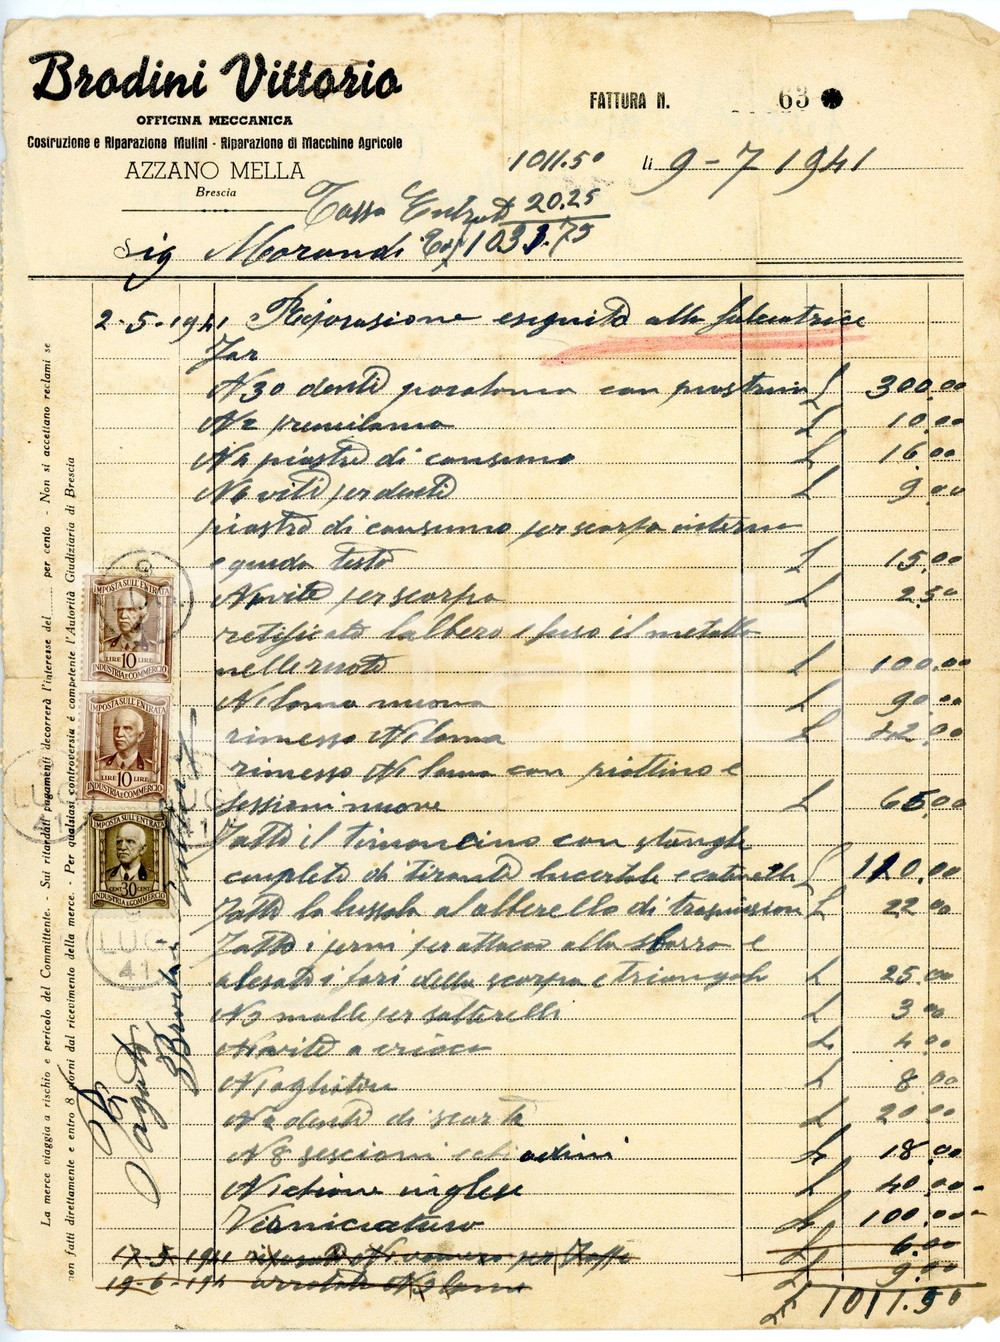 Brodini Vittorio
OFFICINA MECCANICA
Costruzione e Riparazione Mulini - Riparazione di Macchine Agricole
AZZANO MELLA
Brescia
FATTURA N. 63
1011.50
lì 9-7 1941
Tassa Entrata 20.25
1031.75
Sig Morandi
2-5-1941 Riparasione eseguito alla falciatrice
Far
N 30 denti paralama con piastrina L 300.00
N 2 premilama L 10.00
N 4 piastre di consumo L 16.00
N 6 viti per denti L 9.00
piastre di consumo per scarpa interna
e guida testa L 15.00
N vite per scarpa L 2.50
retificato l'albero e fuso il metallo
nelle ruote L 100.00
N 1 lama nuova L 90.00
rimesso N 1 lama L 42.00
rimesso N 1 lama con piattino e
sessioni nuove L 65.00
Fatto il timoncino con stanghe
completo di tirante L 120.00
Fatto la bussola al alberello di trasmission L 22.00
Fatto i perni per attacco alla sbarra e
alesato i fori della scarpa e triangolo L 25.00
N 3 molle per salterelli L 3.00
N vite a croce L 4.00
N 1 L 8.00
N 2 denti di scorta L 20.00
N 8 sessioni L 18.00
N 1 chiave inglese L 40.00
Verniciatura L 100.00
17-5-1941 N 1 vomero per L 6.00
19-6-1941 arrotato N 3 lame L 9.00
L 1011.50
La merce viaggia a rischio e pericolo del Committente. - Sui ritardati pagamenti decorrerà l'interesse del ...... per cento - Non si accettano reclami se
non fatti direttamente e entro 8 giorni dal ricevimento della merce. - Per qualsiasi controversia è competente l'Autorità Giudiziaria di Brescia
IMPOSTA SULL'ENTRATA
LIRE 10 LIRE
INDUSTRIA E COMMERCIO
IMPOSTA SULL'ENTRATA
LIRE 10 LIRE
INDUSTRIA E COMMERCIO
IMPOSTA SULL'ENTRATA
CENT. 30 CENT.
INDUSTRIA E COMMERCIO
LUG
41
LUG
41
LUG
41
Pagato
Brodini Vittorio